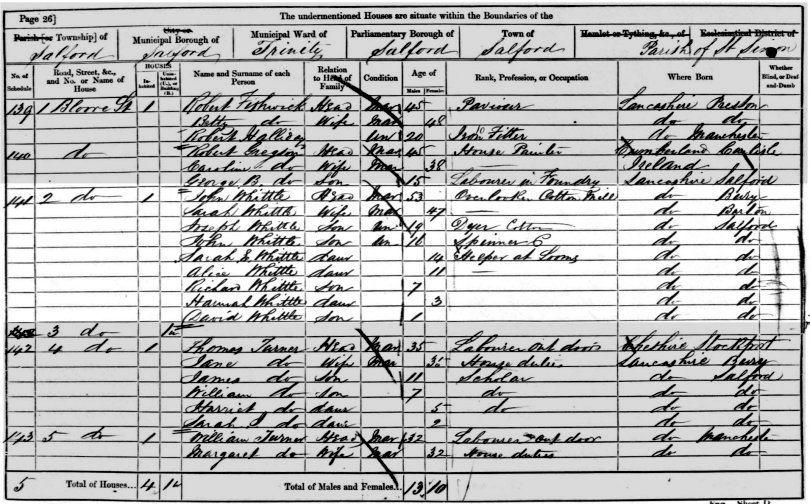 Page 26] The undermentioned Houses are situate within the Boundaries of the
Parish [or Township] of City or Municipal Borough of Municipal Ward of Parliamentary Borough of Town of Hamlet or Tything, &c., of Ecclesiastical District of
Salford Salford Trinity Salford Salford Parish of St Simon
No. of Schedule Road, Street, &c., and No. or Name of House HOUSES Inhabited Uninhabited (U.), or Building (B.) Name and Surname of each Person Relation to Head of Family Condition Age of Males Females Rank, Profession, or Occupation Where Born Whether Blind, or Deaf-and-Dumb
139 1 Bloore St 1 Robert Fishwick Head Mar 45 Pavior Lancashire Preston
Betty do Wife Mar 48 do do
Robert Un 20 Iron Fitter do Manchester
140 do Robert Gregson Head Mar 45 House Painter Cumberland Carlisle
Caroline do Wife Mar 38 Ireland
George B. do Son 15 Labourer in Foundry Lancashire Salford
141 2 do 1 John Whittle Head Mar 53 Overlooker Cotton Mill do Bury
Sarah Whittle Wife Mar 47 — do Barton
Joseph Whittle Son Un 19 Dyer Cotton do Salford
John Whittle Son Un 16 Spinner C do do
Sarah E Whittle daur 14 Helper at Looms do do
Alice Whittle daur 11 — do do
Richard Whittle son 7 do do
Hannah Whittle daur 3 do do
David Whittle son 1 do do
3 do 1u
142 4 do 1 Thomas Turner Head Mar 35 Labourer out doors Cheshire Stockport
Jane do Wife Mar House duties Lancashire Bury
James do Son 11 Scholar do Salford
William do son 7 do do do
Harriet do daur 5 do do do
Sarah J do daur 2 do do
143 5 do 1 William Turner Head Mar 32 Labourer out door do Manchester
Margaret do Wife Mar 32 House duties do do
5 Total of Houses... 4 1u Total of Males and Females... 13 10